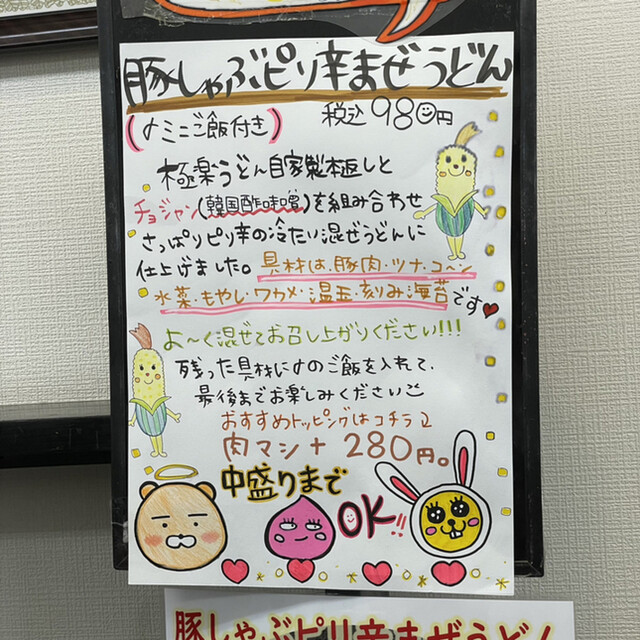 豚しゃぶピリ辛まぜうどん
(〆ミニご飯付き) 税込980円
極楽うどん自家製本返しと
チョジャン(韓国酢味噌)を組み合わせ
さっぱりピリ辛の冷たい混ぜうどんに
仕上げました。具材は、豚肉・ツナ・コーン
水菜・もやし・ワカメ・温玉・刻み海苔です
よ〜く混ぜてお召し上がりください!!!
残った具材に〆のご飯を入れて、
最後までお楽しみください
おすすめトッピングはコチラ
肉マシ+280円。
中盛りまで
OK!!
豚しゃぶピリ辛まぜうどん